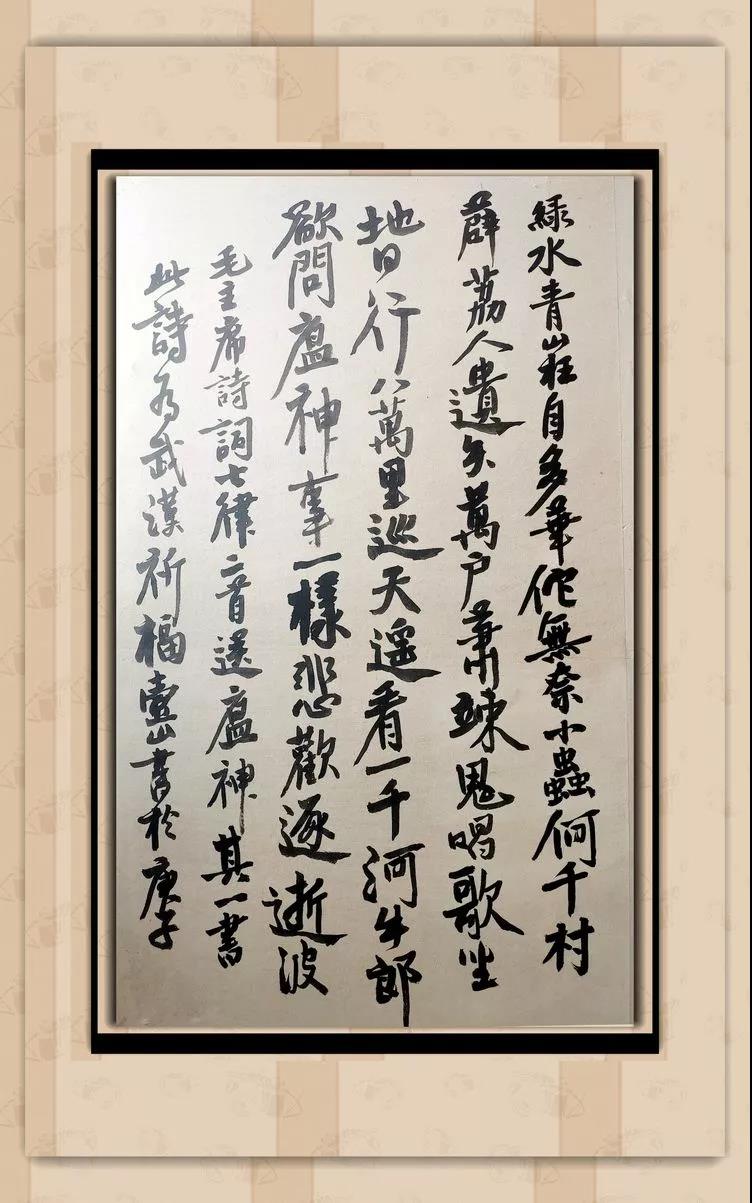 綠水青山枉自多華佗無奈小蟲何千村
薜荔人遺矢萬户蕭疎鬼唱歌坐
地日行八萬里巡天遥看一千河牛郎
欲問瘟神事一樣悲歡逐逝波
毛主席詩詞七律二首送瘟神其一書
此詩为武漢祈福山書於庚子